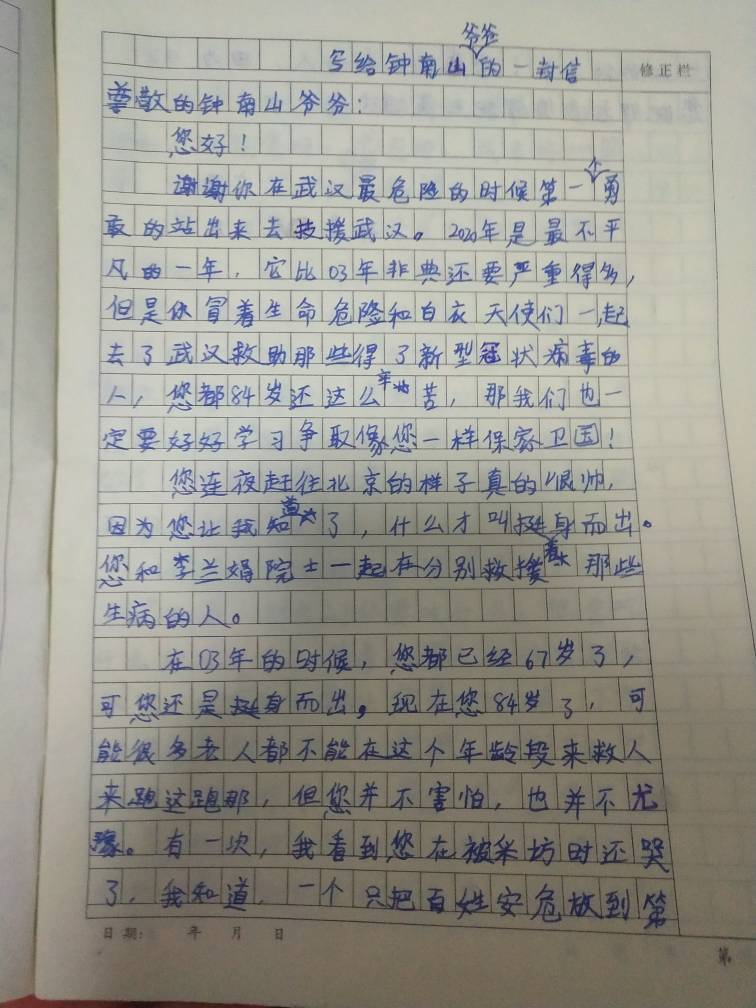 写给钟南山爷爷的一封信
修正栏
尊敬的钟南山爷爷：
您好！
谢谢你在武汉最危险的时候第一个勇
敢的站出来去技援武汉。2020年是最不平
凡的一年，它比03年非典还要严重得多，
但是你冒着生命危险和白衣天使们一起
去了武汉救助那些得了新型冠状病毒的
人，您都84岁还这么辛苦，那我们也一
定要好好学习争取像您一样保家卫国！
您连夜赶往北京的样子真的很帅，
因为您让我知道了，什么才叫挺身而出。
您和李兰娟院士一起在分别救援着那些
生病的人。
在03年的时候，您都已经67岁了，
可您还是挺身而出，现在您84岁了，可
能很多老人都不能在这个年龄段来救人
来跑这跑那，但您并不害怕，也并不尤
豫。有一次，我看到您在被采坊时还哭
了，我知道，一个只把百姓安危放到第
日期： 年 月 日
第